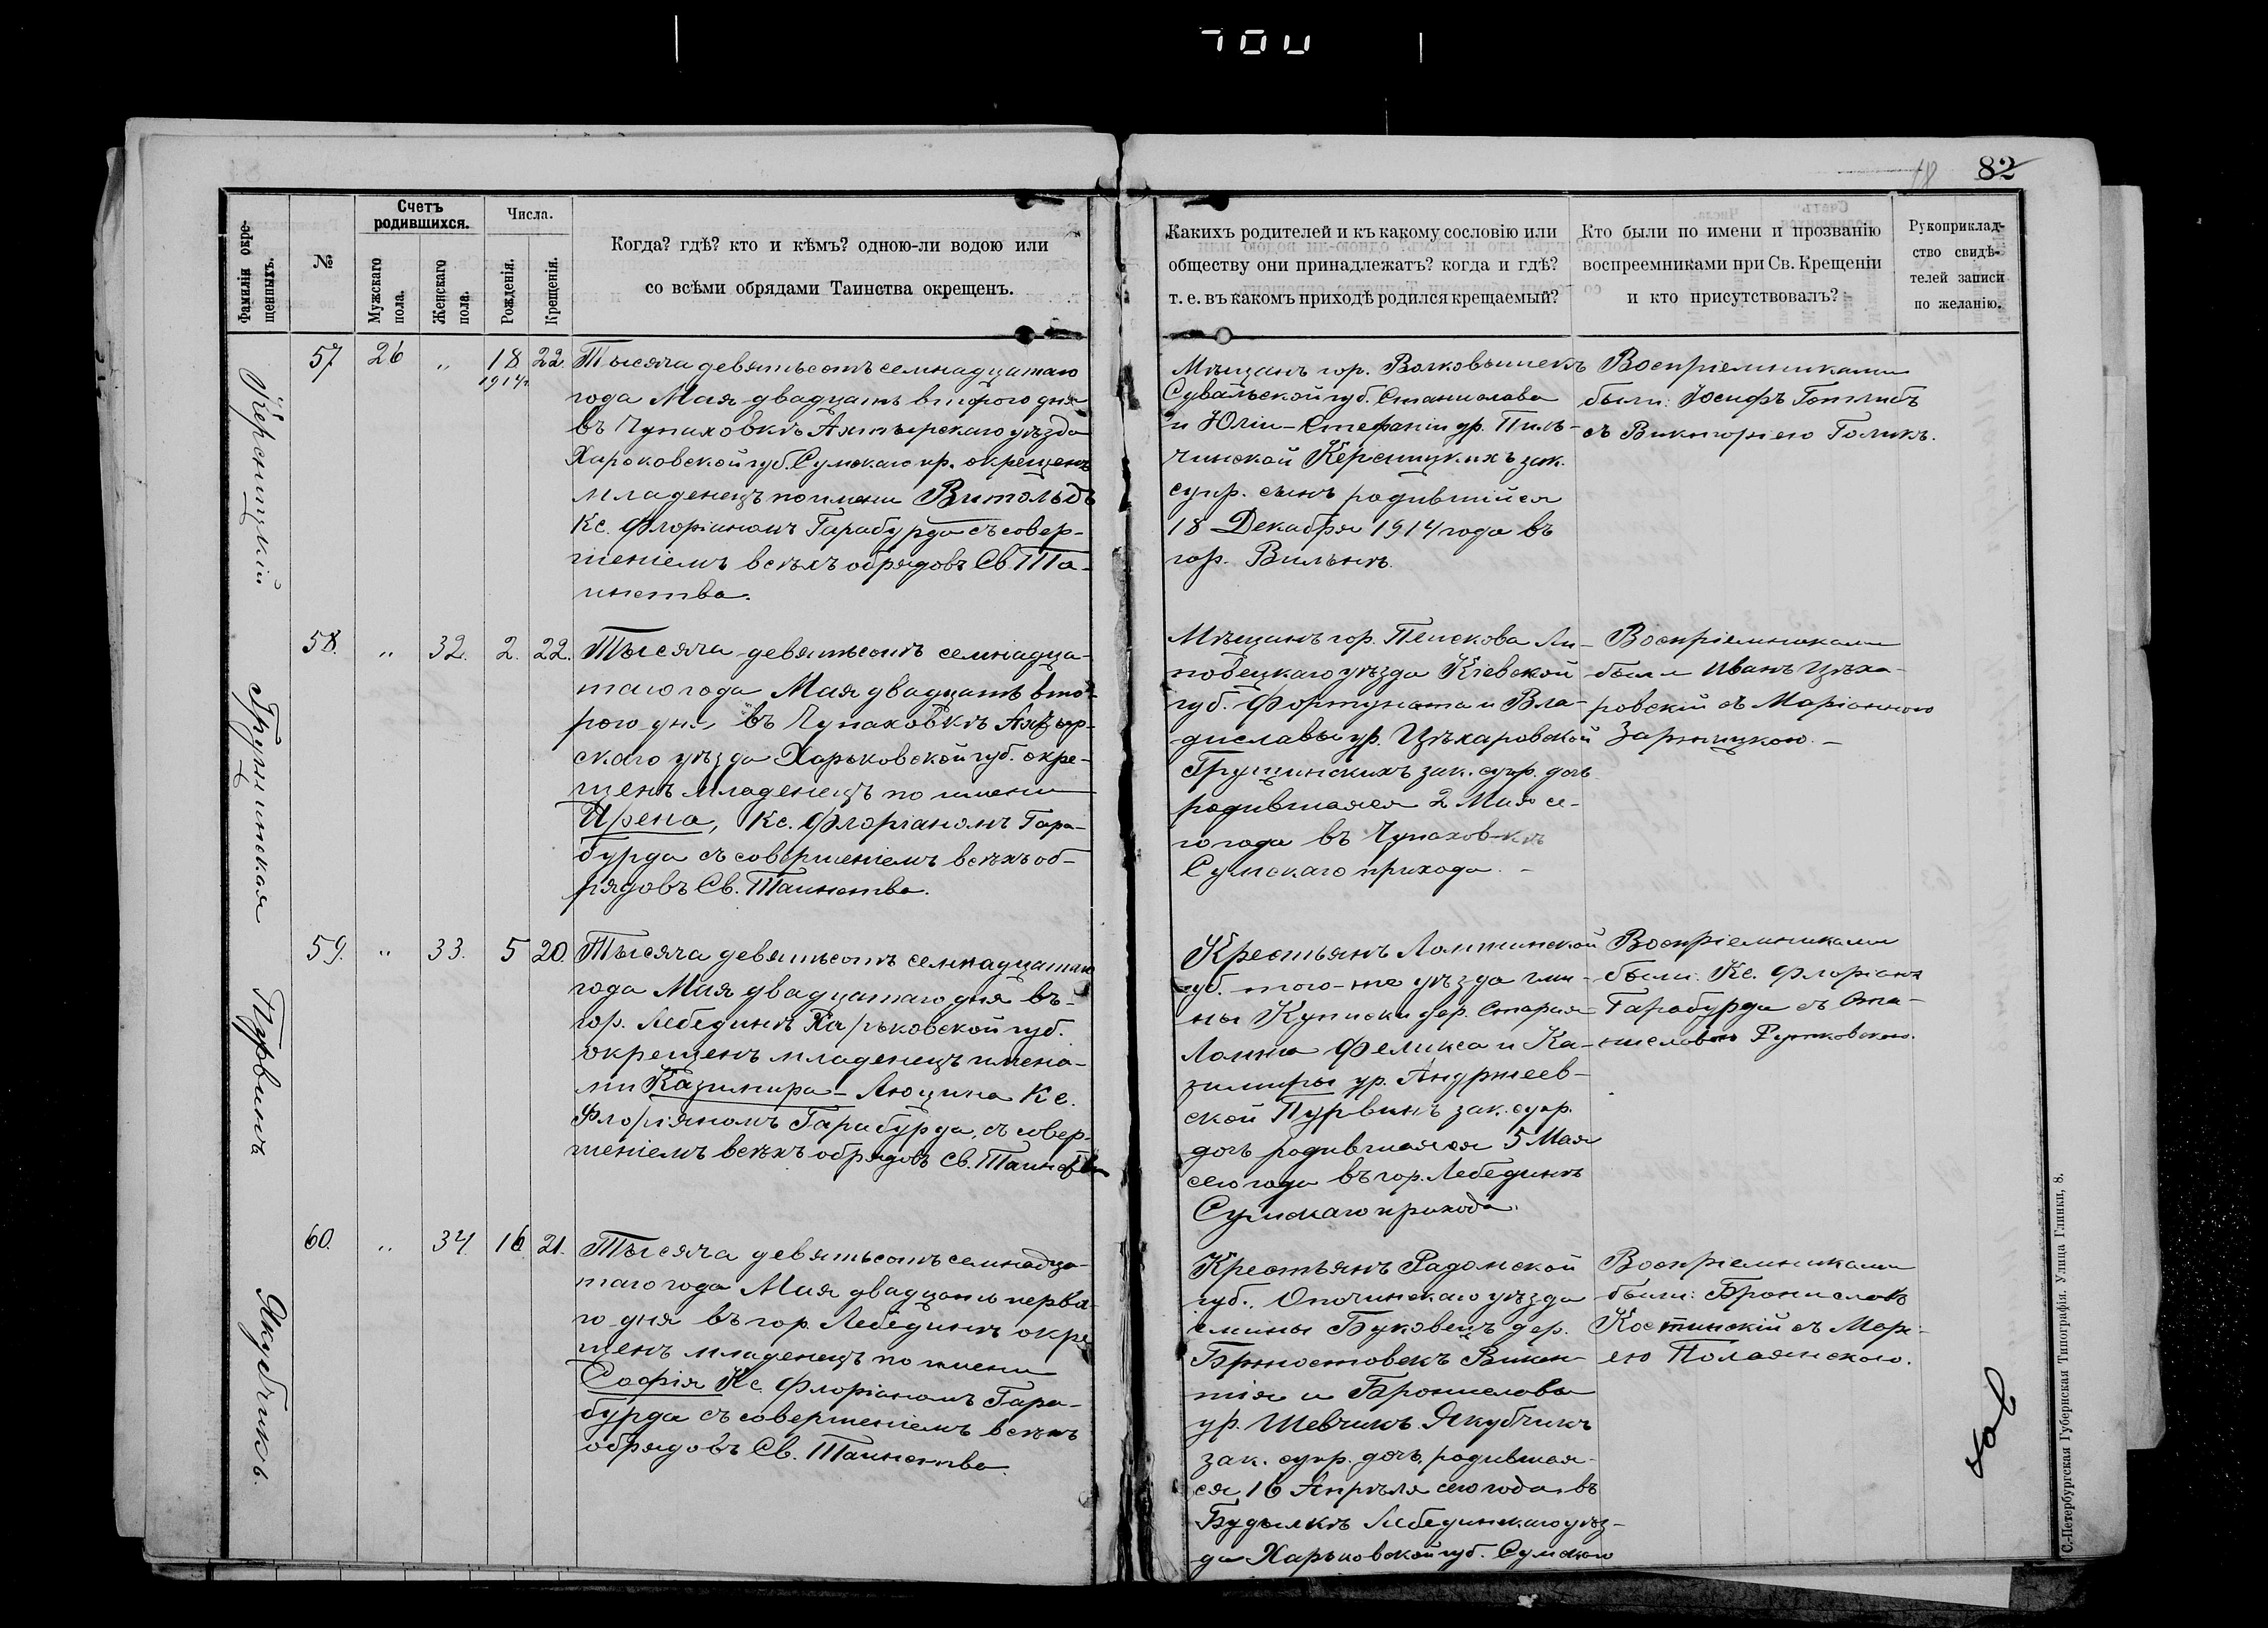 82
Фамиліи окре-
щенныхъ.
№
Счетъ
родившихся.
Мужскаго
пола.
Женскаго
пола.
Числа.
Рожденія.
Крещенія.
Когда? гдѣ? кто и кѣмъ? одною-ли водою или
со всѣми обрядами Таинства окрещенъ.
Какихъ родителей и къ какому сословію или
обществу они принадлежатъ? когда и гдѣ?
т. е. въ какомъ приходѣ родился крещаемый?
Кто были по имени и прозванію
воспреемниками при Св. Крещеніи
и кто присутствовалъ?
Рукоприклад-
ство свидѣ-
телей записи
по желанію.
Керсницкій
57 26 „ 18 22.
1914г.
Тысяча девятьсотъ семнадцатаго
года Мая двадцать второго дня
въ Чупаховкѣ Ахтырскаго уѣзда
Харьковской губ. Сумскаго пр. окрещенъ
младенецъ по имени Витольдъ
Кс. Флоріаномъ Гарабурда съ совер-
шеніемъ всѣхъ обрядовъ Св. Та-
инства.
Мѣщанъ гор. Волковышекъ
Сувалкской губ. Станислава
и Юліи-Стефаніи ур. Пиль-
чинской Керсницкихъ зак.
супр. сынъ родившійся
18 Декабря 1914 года въ
гор. Вильнѣ.
Воспріемниками
были: Іосифъ Готлибъ
съ Викторіею Голикъ.
Грушинская
58. „ 32. 2. 22.
Тысяча девятьсотъ семнадца-
таго года Мая двадцать вто-
рого дня въ Чупаховкѣ Ахтыр-
скаго уѣзда Харьковской губ. окре-
щенъ младенецъ по имени
Ирена, Кс. Флоріаномъ Гара-
бурда съ совершеніемъ всѣхъ об-
рядовъ Св. Таинства.
Мѣщанъ гор. Пискова Ли-
повецкаго уѣзда Кіевской
губ. Фортуната и Вла-
диславы ур. Цѣхаровской
Грушинскихъ зак. супр. дочь
родившаяся 2 Мая се-
го года въ Чупаховкѣ
Сумскаго прихода. -
Воспріемниками
были Иванъ Цѣха-
ровскій съ Маріанною
Зарницкою. -
Пурвинъ
59. „ 33. 5 20.
Тысяча девятьсотъ семнадцатаго
года Мая двадцатаго дня въ
гор. Лебединѣ Харьковской губ.
окрещенъ младенецъ имена-
ми Казимира-Люцина Кс.
Флоріаномъ Гарабурда, съ совер-
шеніемъ всѣхъ обрядовъ Св. Таинства
Крестьянъ Ломжинской
губ. того-же уѣзда гми-
ны Куписки дер. Старая
Ломжа Феликса и Ка-
зимиры ур. Андржеев-
ской Пурвинъ зак. супр.
дочь родившаяся 5 Мая
сего года въ гор. Лебединѣ
Сумскаго прихода.
Воспріемниками
были: Кс. Флоріанъ
Гарабурда съ Ста-
ниславою Рутковскою.
Якубчикъ.
60. „ 34. 16 21.
Тысяча девятьсотъ семнадца-
таго года Мая двадцать перва-
го дня въ гор. Лебединѣ окре
щенъ младенецъ по имени
Софія Кс. Флоріаномъ Гара-
бурда съ совершеніемъ всѣхъ
обрядовъ Св. Таинства.
Крестьянъ Радомской
губ. Опочинскаго уѣзда
гмины Буковецъ дер.
Бржостовекъ Викен-
тія и Брониславы
ур. Шевчикъ Якубчикъ
зак. супр. дочь, родившая-
ся 16 Апрѣля сего года въ
Будылкѣ Лебединскаго уѣз-
да Харьковской губ. Сумского
Воспріемниками
были: Брониславъ
Костинскій съ Марі-
ею Полаянскою.
С.-Петербургская Губернская Типографія. Улица Глинки, 8.